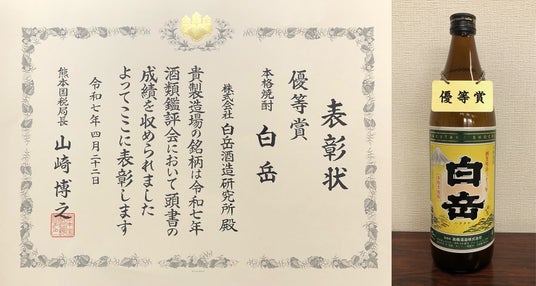 表彰状
優等賞
本格焼酎 白岳
株式会社 白岳酒造研究所 殿
貴製造場の銘柄は令和七年
酒類鑑評会において頭書の
成績を収められました
よってここに表彰します
令和七年四月二十二日
熊本国税局長 山崎博之
優等賞
白岳